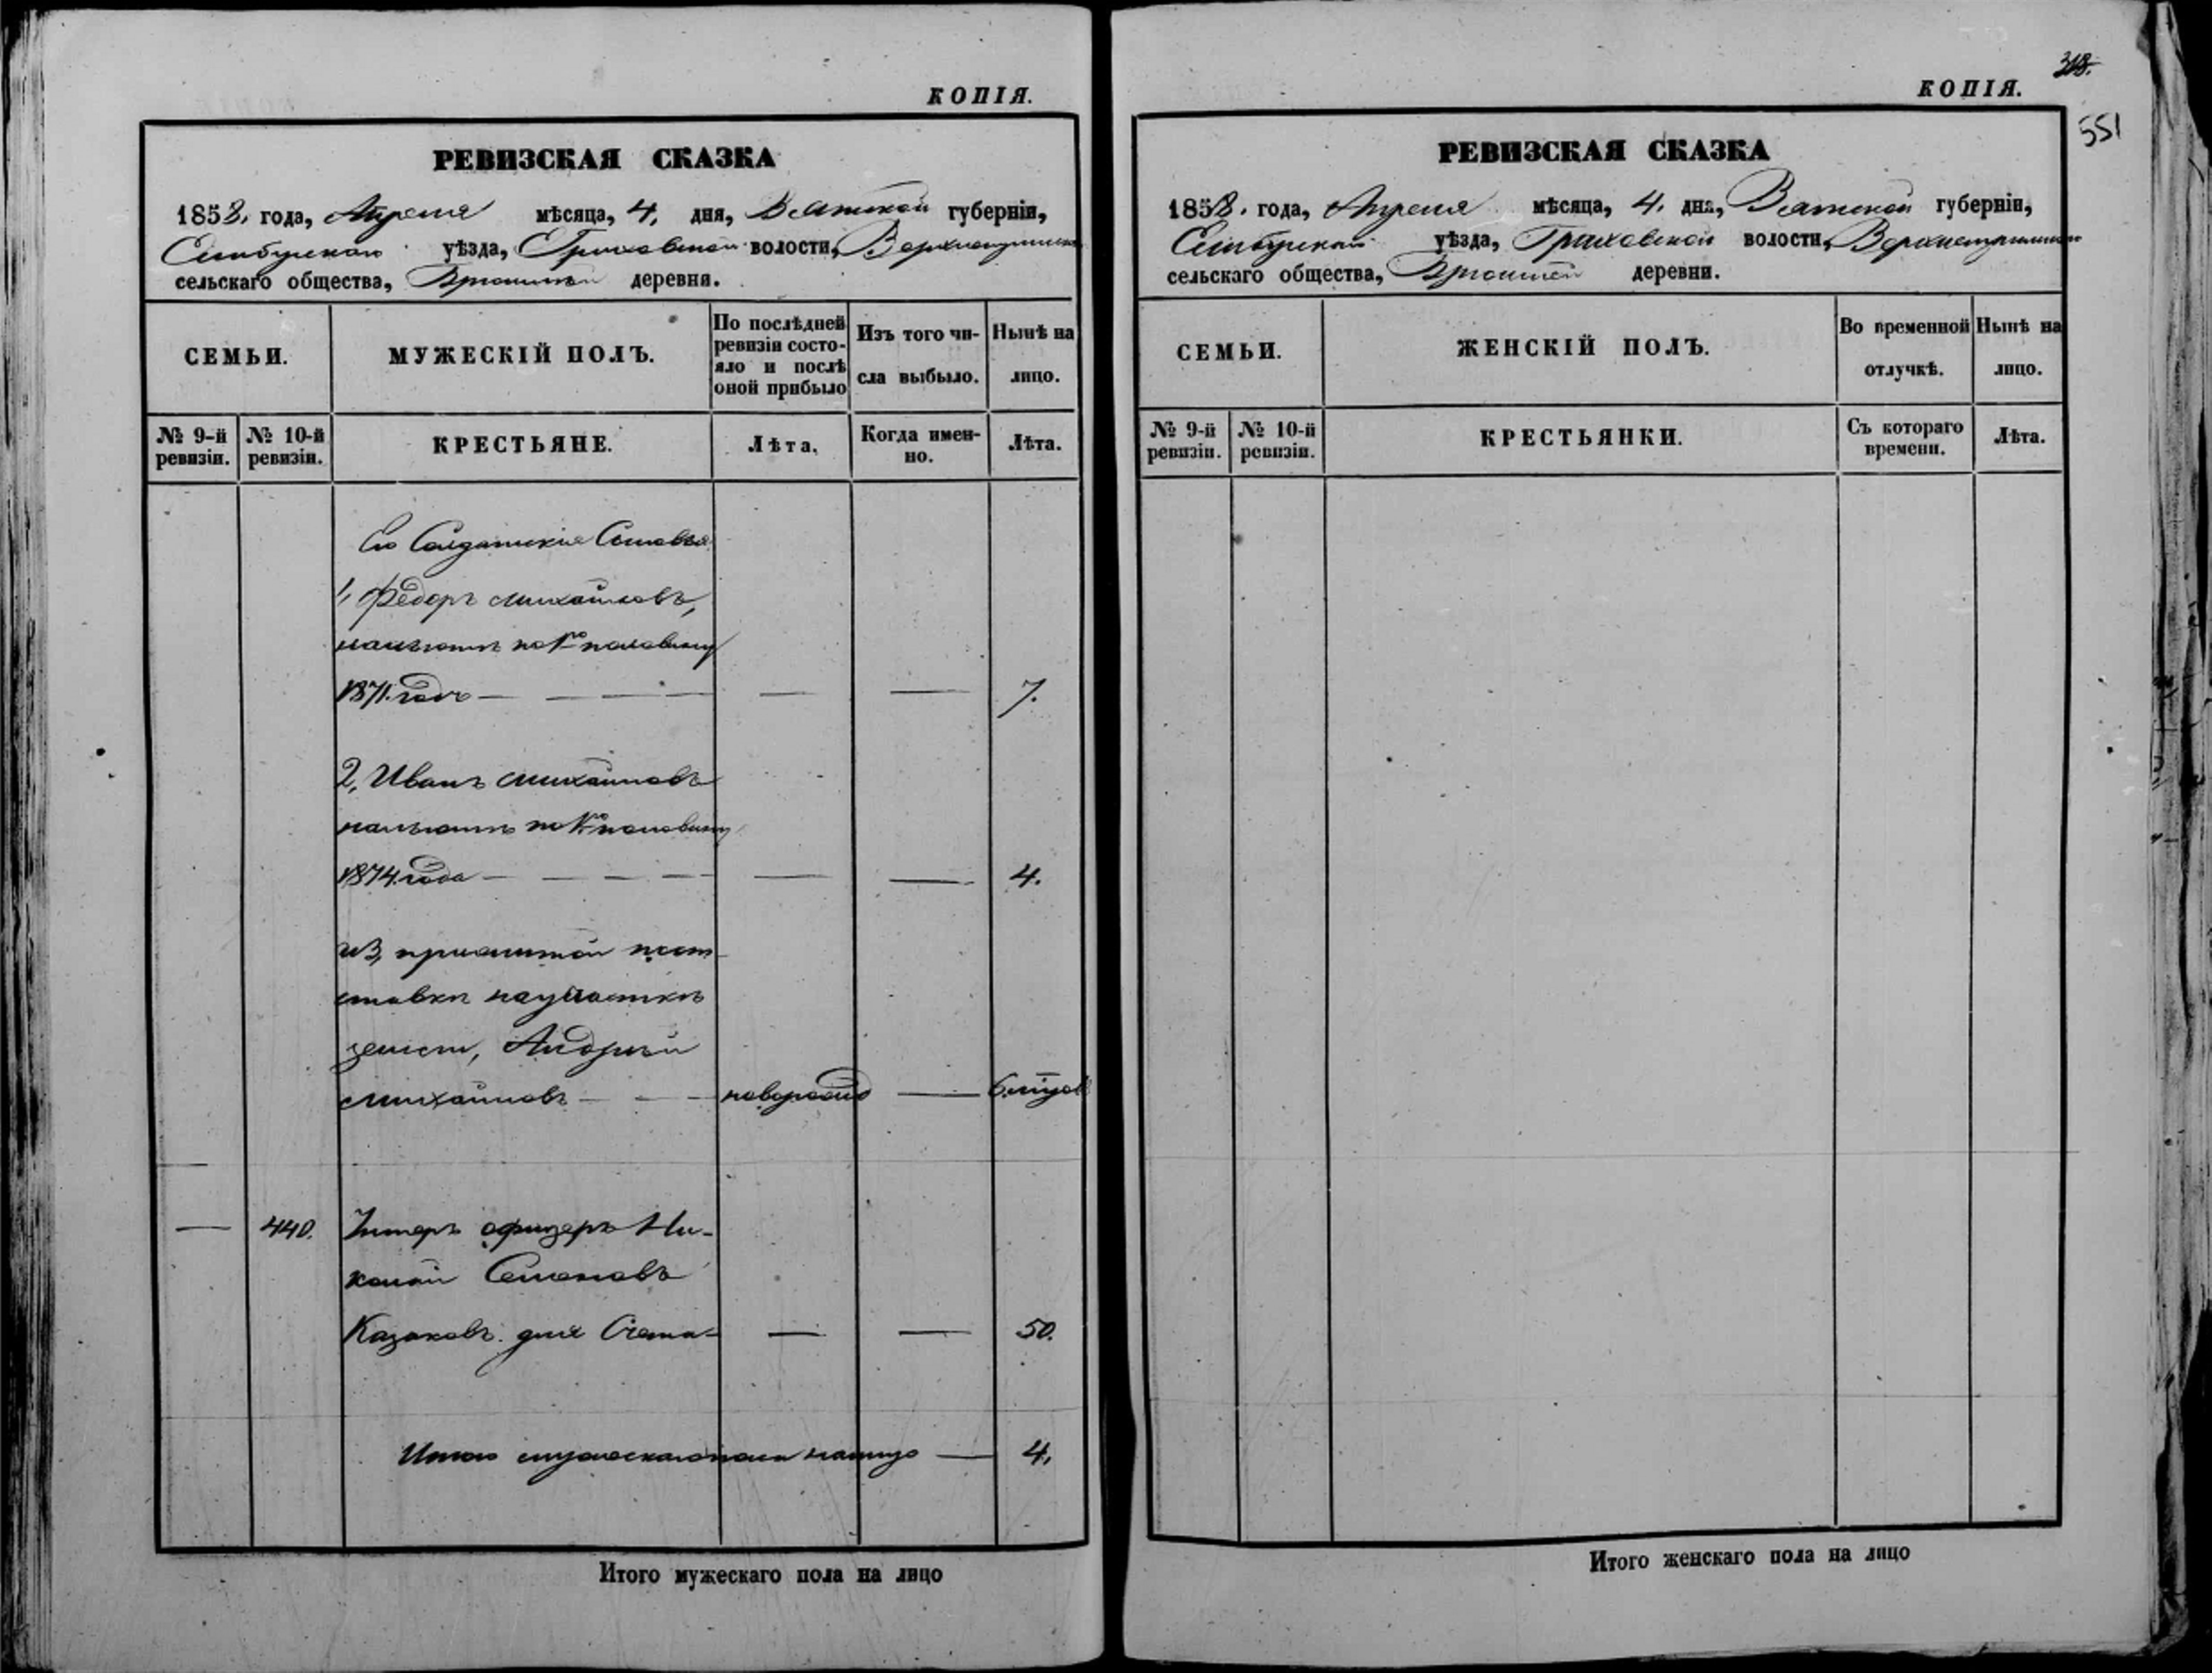 КОПІЯ.
РЕВИЗСКАЯ СКАЗКА
1858. года, Апреля мѣсяца, 4. дня, Вятской губерніи,
Елабужскаго уѣзда, Граховской волости,
сельскаго общества, деревни.
СЕМЬИ.
МУЖЕСКІЙ ПОЛЪ.
По послѣдней ревизіи состо-
яло и послѣ оной прибыло
Изъ того чи-
сла выбыло.
Нынѣ на
лицо.
№ 9-й ревизіи.
№ 10-й ревизіи.
КРЕСТЬЯНЕ.
Лѣта.
Когда имен-
но.
Лѣта.
Его Солдатскія Сыновья
1, Федоръ Михайловъ,
по 1ю половину
1871. годъ — — — — — 7.
2, Иванъ Михайловъ
по 1ю половину
1874. года — — — — — — 4.
Андрей
Михайловъ — — — 6.
— 440. Унтеръ офицеръ Ни-
колай Семеновъ
Казаковъ. для Счета — — 50.
Итого мужескаго пола налицо — 4.
Итого мужескаго пола на лицо
318.
КОПІЯ.
551
РЕВИЗСКАЯ СКАЗКА
1858. года, Апреля мѣсяца, 4. дня, Вятской губерніи,
Елабужскаго уѣзда, Граховской волости,
сельскаго общества, деревни.
СЕМЬИ.
ЖЕНСКІЙ ПОЛЪ.
Во временной
отлучкѣ.
Нынѣ на
лицо.
№ 9-й ревизіи.
№ 10-й ревизіи.
КРЕСТЬЯНКИ.
Съ котораго
времени.
Лѣта.
Итого женскаго пола на лицо